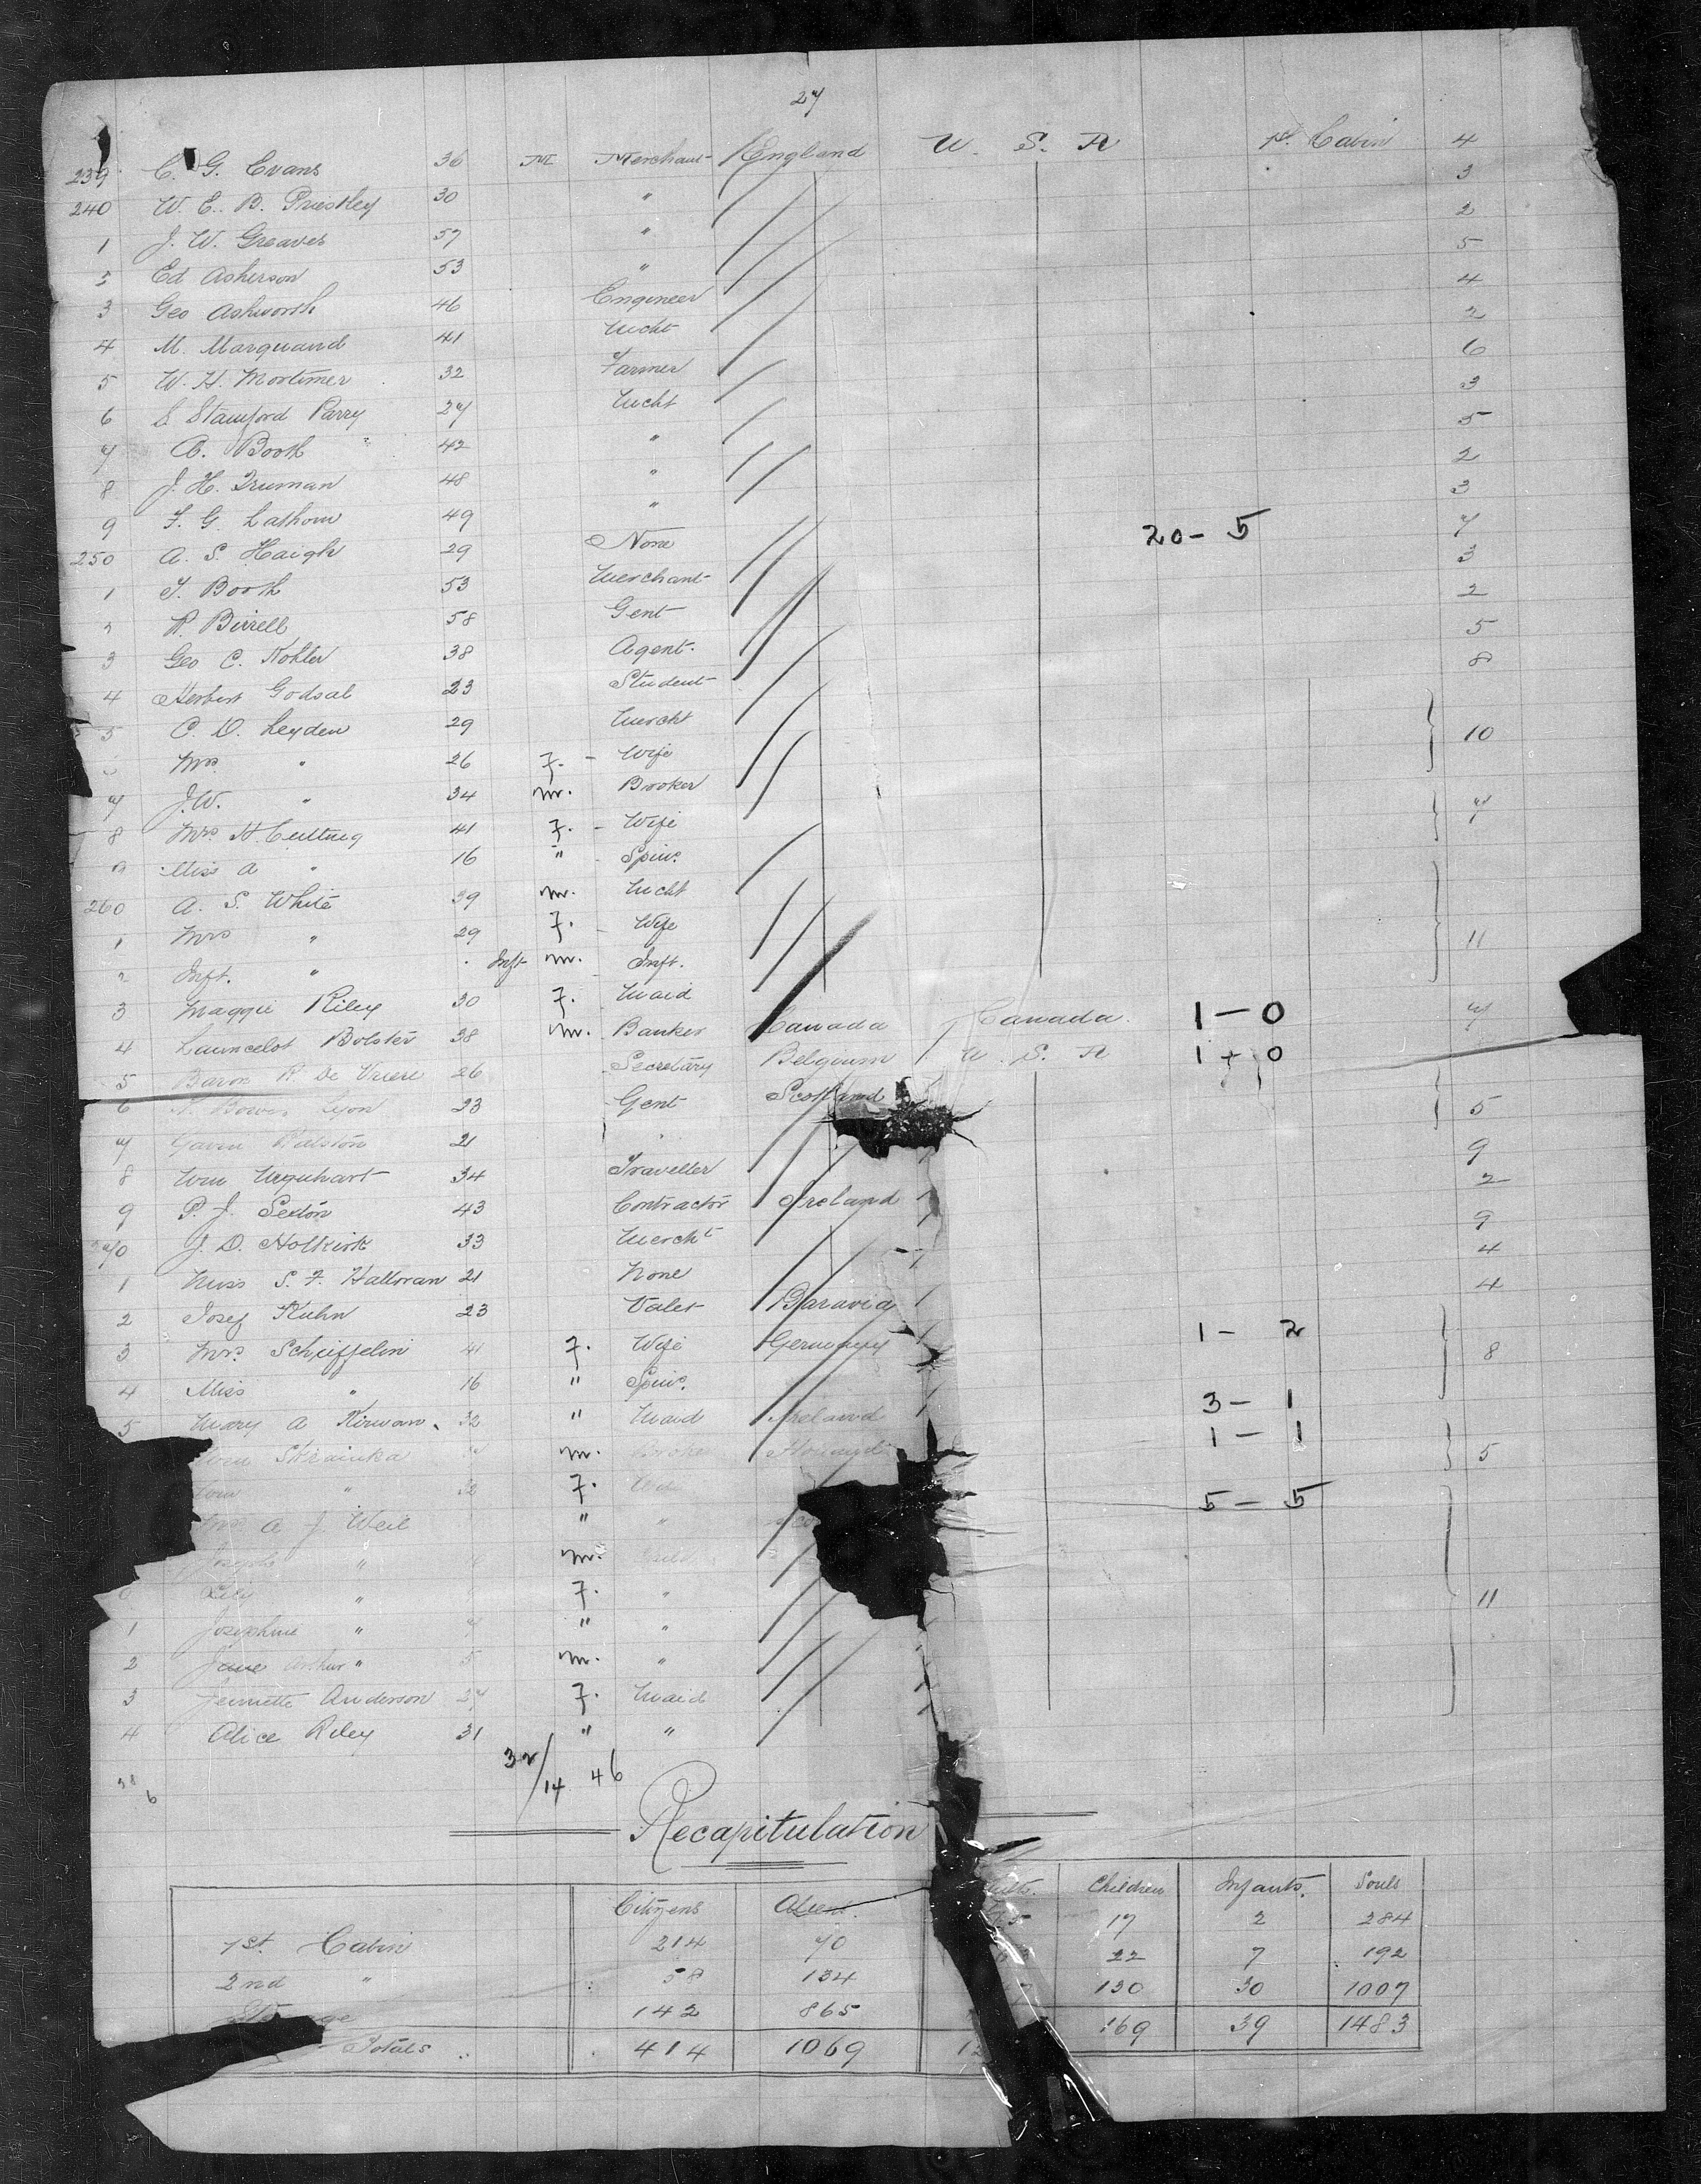 27
239 C. G. Evans 36 M Merchant England U. S. A 1st Cabin 4
240 W. E. B. Priestley 30 " 3
1 J. W. Greaves 57 " 2
2 Ed Asherson 53 " 5
3 Geo Ashworth 46 Engineer 4
4 M. Marquand 41 Mcht 2
5 W. H. Mortimer 32 Farmer 6
6 S Stamford Parry 27 Mcht 3
7 A. Booth 42 " 5
8 J. H. Truman 48 " 2
9 F. G. Lathom 49 " 3
250 A. S. Haigh 29 None 20 - 5 7
1 T. Booth 53 Merchant 3
2 R. Birrell 58 Gent 2
3 Geo C. Kohler 38 Agent. 5
4 Herbert Godsal 23 Student 8
5 C. D. Leyden 29 Mercht
Mrs " 26 F. - Wife 10
7 J.W. " 34 M. Booker
8 Mrs H. Cutting 41 F. - Wife 7
9 Miss A " 16 " Spin.
260 A. S. White 39 M. Mcht
1 Mrs " 29 F. - Wife
2 Inft. " Inft M. Inft. 11
3 Maggie Riley 30 F. Maid
4 Launcelot Bolster 38 M. Banker Canada Canada. 1 - 0 7
5 Baron R. De Vriere 26 Secretary Belgium U. S. A 1 + 0
6 Bowes Lyon 23 Gent Scotland 5
7 Gavin Ralston 21 "
8 Wm Urquhart 34 Traveller 9
9 P. J. Sexton 43 Contractor Ireland 2
270 J. D. Holkirk 33 Mercht 9
1 Miss S. F. Halloran 21 None 4
2 Josef Kuhn 23 Valet Baravia 4
3 Mrs. Schieffelin 41 F. Wife Germany 1 - 2
4 Miss " 16 " Spin. 8
5 Mary A Kirwan 32 " Maid Ireland 3 - 1
Strainka M. 1 - 1
" 32 F. 5
Mrs A J Weil " " 5 - 5
Joseph " M.
Lily " F. "
1 Josephine " 7 " " 11
2 Jane Arthur " 5 M. "
3 Jennette Anderson 27 F. Maid
4 Alice Riley 31 " "
32/14 46
Recapitulation
Citizens Aliens. Children Infants. Souls
1st. Cabin 214 70 17 2 284
2nd " 58 134 22 7 192
142 865 130 30 1007
Totals 414 1069 169 39 1483